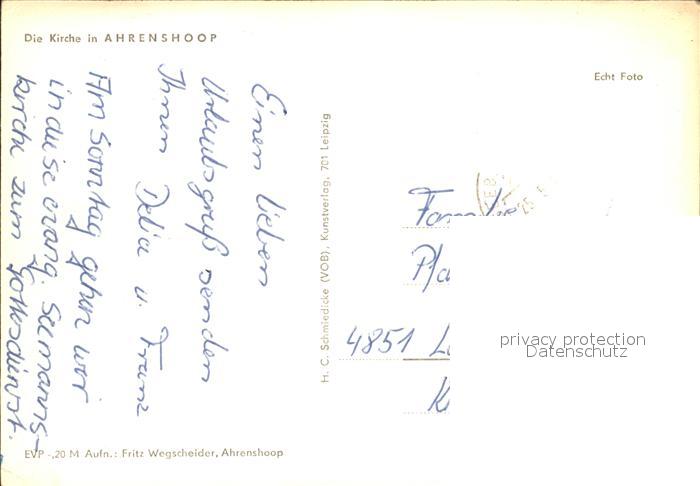 Die Kirche in AHRENSHOOP
Echt Foto
Einen lieben
Urlaubsgruß senden
Ihnen Delia u. Franz
Am Sonntag gehen wir
in diese evang. Seemanns-
kirche zum Gottesdienst.
H. C. Schmiedicke (VOB), Kunstverlag, 701 Leipzig
Familie
Pfa
4851
K
privacy protection
Datenschutz
EVP -,20 M Aufn.: Fritz Wegscheider, Ahrenshoop